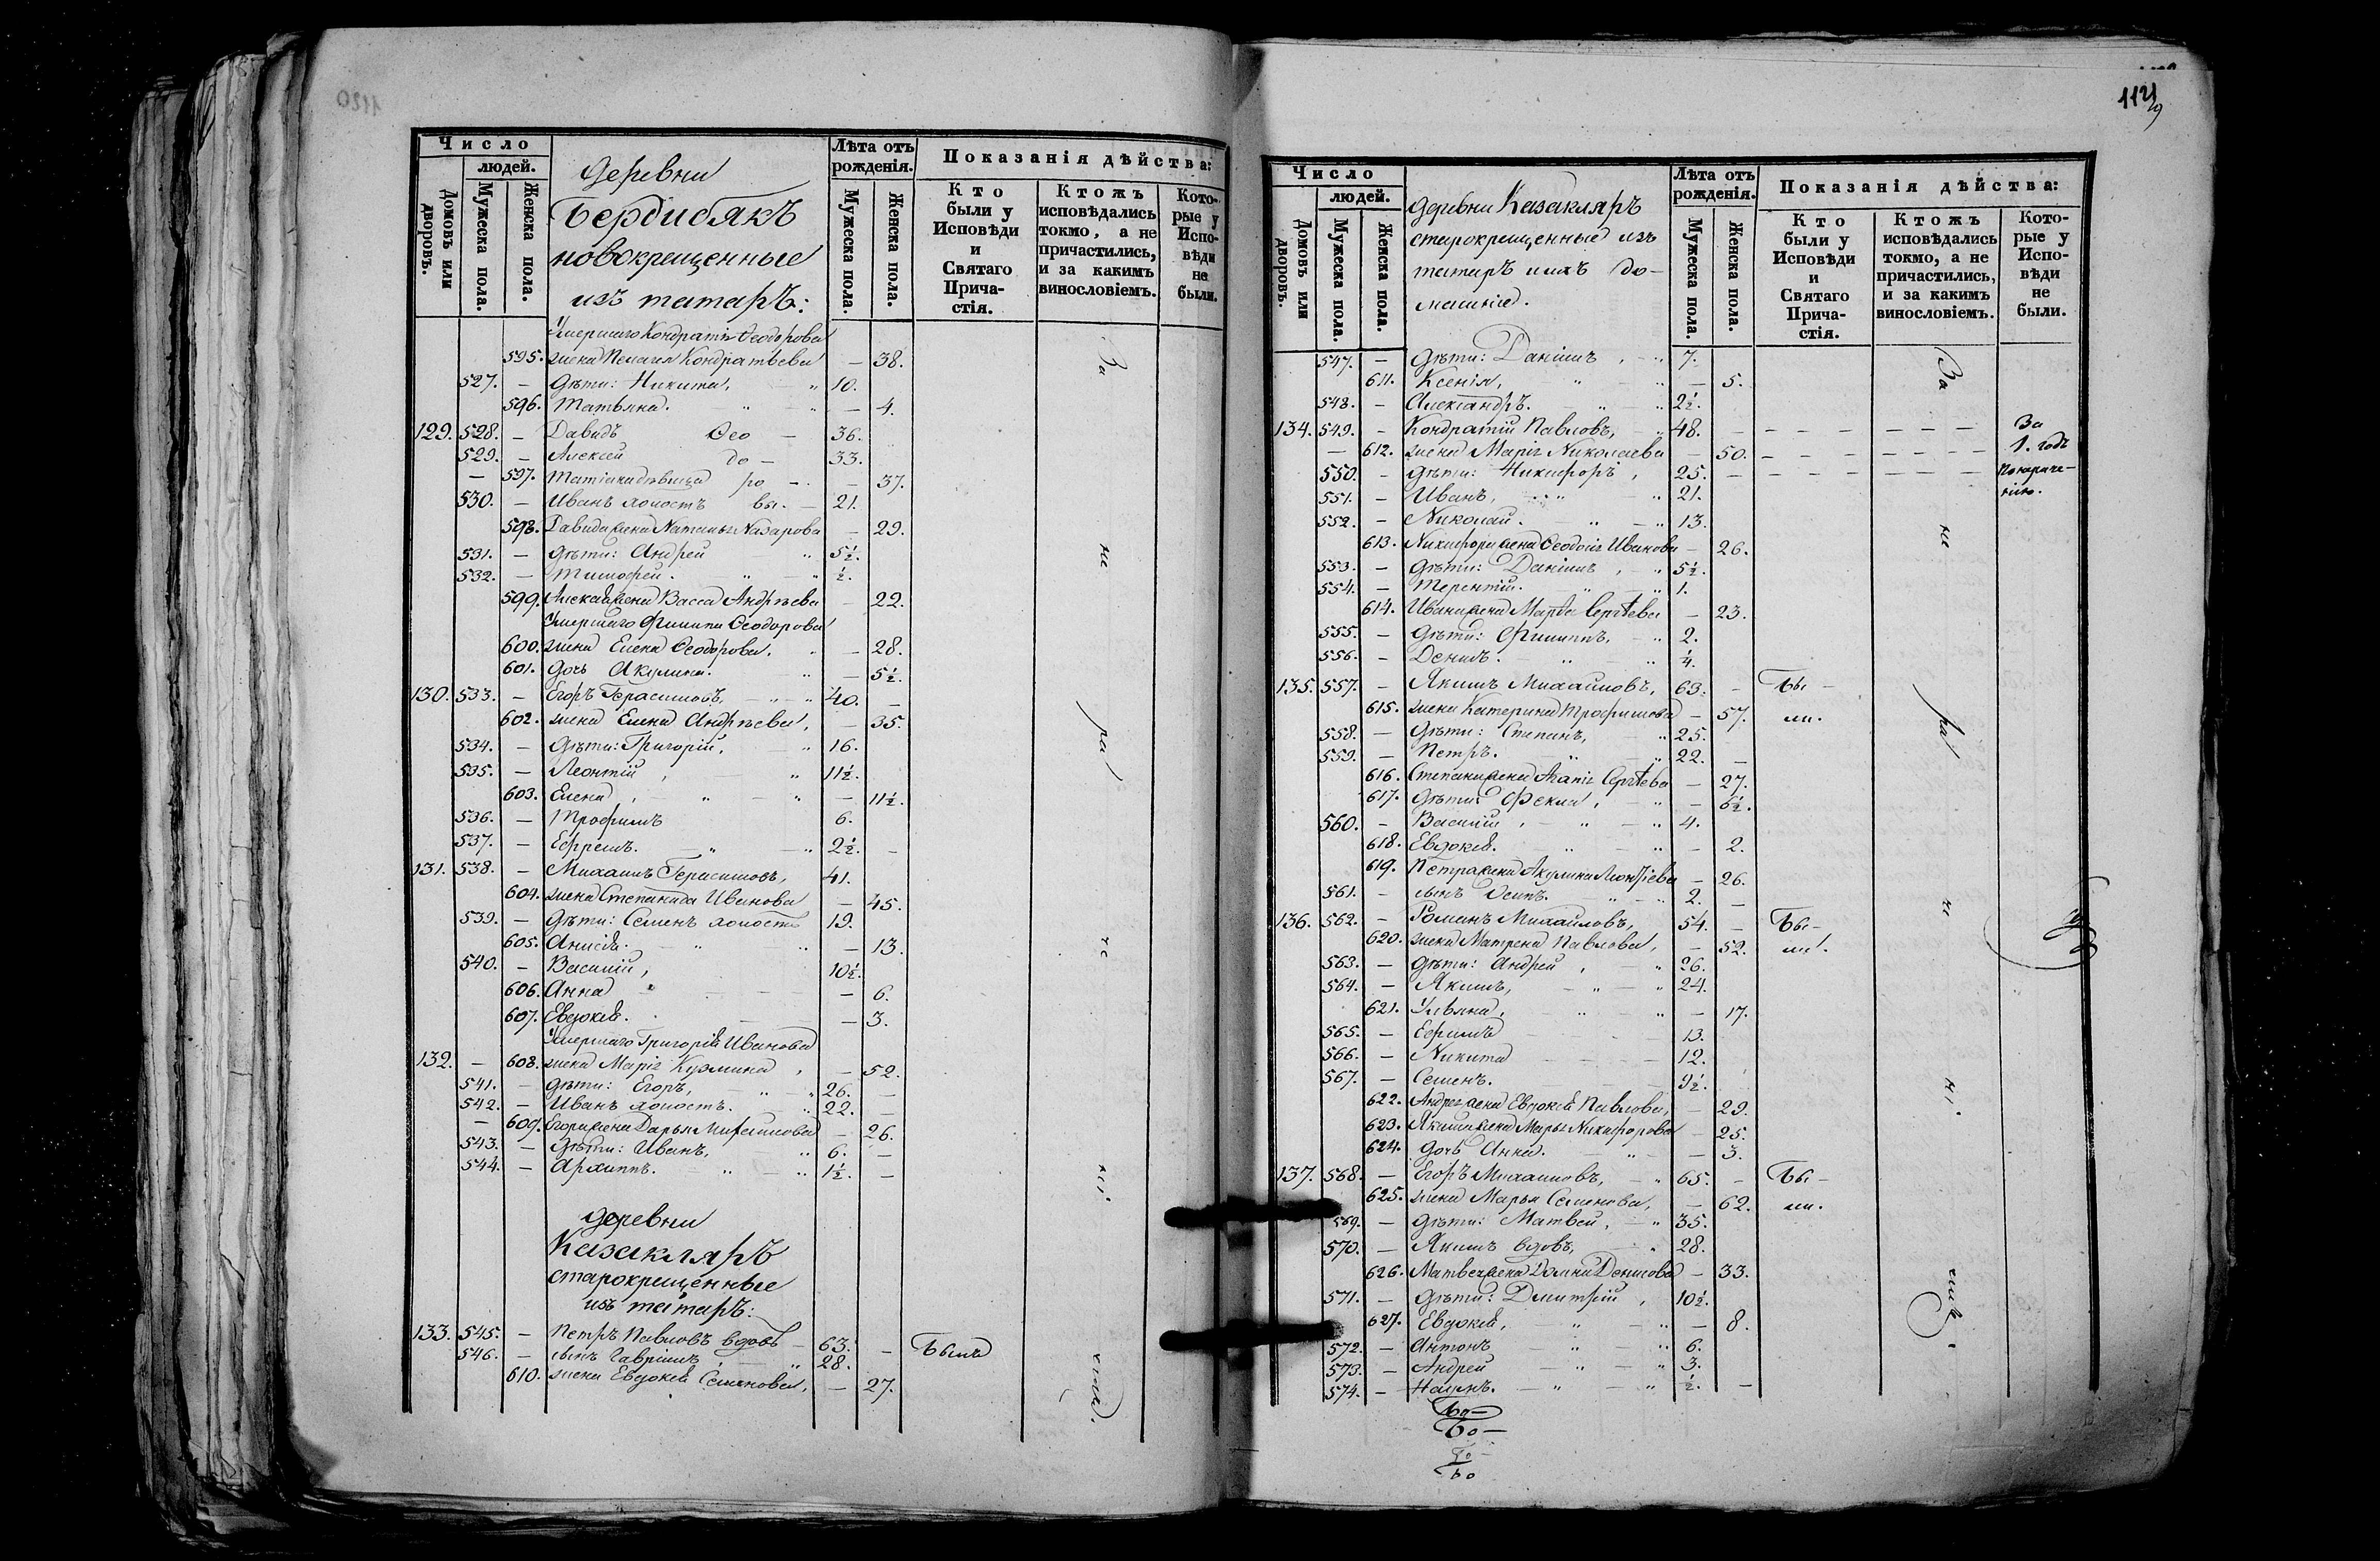 Число
людей.
Домовъ или дворовъ.
Мужеска пола.
Женска пола.
деревни
Бердибякъ
новокрещенные
изъ татаръ:
Лѣта отъ рожденія.
Мужеска пола.
Женска пола.
Показанія дѣйства:
Кто были у Исповѣди и Святаго Прича-стія.
Ктожъ исповѣдались токмо, а не причастились, и за какимъ винословіемъ.
Кото-рые у Испо-вѣди не были.
Умершаго Кондратія Ѳеодорова
595. жена Пелагея Кондратьева — 38.
527. — дѣти: Никита, " 10.
596. Татьяна. " " — 4.
129. 528. — Давидъ Ѳео — 36.
529. — Алексей до — 33.
— 597. Татіана дѣвица ро — — 37.
530. — Иванъ холостъ вы. — 21.
598. Давида жена Наталья Назарова — 29.
531. — дѣти: Андрей " 5½.
532. — Тимофей. " " ½.
599. Алексея жена Васса Андрѣева — 22.
Умершаго Филипа Ѳеодорова
600. жена Елена Ѳеодорова. — 28.
601. дочь Акулина. " — 5½.
130. 533. — Егоръ Герасимовъ, 40. —
602. жена Елена Андрѣева, — 35.
534. — дѣти: Григорій, " 16.
535. — Леонтій, " 11½.
603. Елена, " " — 11½.
536. — Трофимъ 6.
537. — Ефремъ. " " 2½. —
131. 538. — Михаилъ Герасимовъ, 41.
604. жена Степанида Иванова — 45.
539. — дѣти: Семенъ холостъ 19.
605. Анисія. " " — 13.
540. — Василій, 10½.
606. Анна " — 6.
607. Евдокія. — 3.
Умершаго Григорія Иванова
132. — 608. жена Марія Кузмина, — 52.
541. — дѣти: Егоръ, " 26. —
542. — Иванъ холостъ. " 22. —
— 609. Егора жена Дарья Михаилова — 26.
543. — дѣти: Иванъ, " 6. —
544. — Архиппъ. " " 1½. —
деревни
Казакларъ
старокрещенные
изъ татаръ:
133. 545. — Петръ Павловъ вдовъ — 63. — Былъ
546. — сынъ Гавріилъ, " 28.
610. жена Евдокія Семенова, — 27.
За
не
ра
че
ні
емъ.
1121
Число
людей.
Домовъ или дворовъ.
Мужеска пола.
Женска пола.
деревни Казакларъ
старокрещенные изъ
татаръ и ихъ до-
машніе.
Лѣта отъ рожденія.
Мужеска пола.
Женска пола.
Показанія дѣйства:
Кто были у Исповѣди и Святаго Прича-стія.
Ктожъ исповѣдались токмо, а не причастились, и за какимъ винословіемъ.
Кото-рые у Испо-вѣди не были.
547. — дѣти: Даніилъ, " 7.
611. Ксенія, " " — 5.
548. — Александръ. " " 2½.
134. 549. — Кондратій Павловъ, " 48. — За
— 612. жена Марія Николаева — 50. 1. годъ
550. — дѣти: Никифоръ, 25.
551. — Иванъ, " " 21.
552. — Николай. " " 13.
613. Никифора жена Ѳеодосія Иванова — 26.
553. — дѣти: Даніилъ, " 5½.
554. — Терентій. " " 1.
614. Ивана жена Марѳа Сергѣева — 23.
555. — дѣти: Филиппъ. " 2.
556. — Денисъ. " " ¼.
135. 557. — Якимъ Михаиловъ, 63. — Бы-
615. жена Катерина Трофимова — 57. ли.
558. — дѣти: Степанъ, " 25.
559. — Петръ. " " 22. —
616. Степана жена Агапія Сергѣева — 27.
617. дѣти: Фекла, " — 6½.
560. — Василій, " " 4.
618. Евдокія. " " — 2.
619. Петра жена Акулина Леонтіева — 26.
561. — сынъ Осипъ. " " 2. —
136. 562. — Романъ Михаиловъ, 54. — Бы-
620. жена Матрена Павлова, — 52. ли.
563. — дѣти: Андрей, " 26.
564. — Якимъ, " " 24.
621. Ульяна, " " — 17.
565. — Ефимъ 13.
566. — Никита 12.
567. — Семенъ. 9½.
622. Андрея жена Евдокія Павлова, — 29.
623. Якима жена Марья Никифорова — 25.
624. дочь Анна. " — 3.
137. 568. — Егоръ Михаиловъ, " 65. — Бы-
625. жена Марья Семенова, — 62. ли.
569. — дѣти: Матвей, " 35.
570. — Якимъ вдовъ, " 28.
626. Матвея жена Домна Денисова — 33.
571. — дѣти: Дмитрій, 10½.
627. Евдокія, " " — 8.
572. — Антонъ " " 6.
573. — Андрей " " 3.
574. — " " ½. —
За
не
ра
че
ні